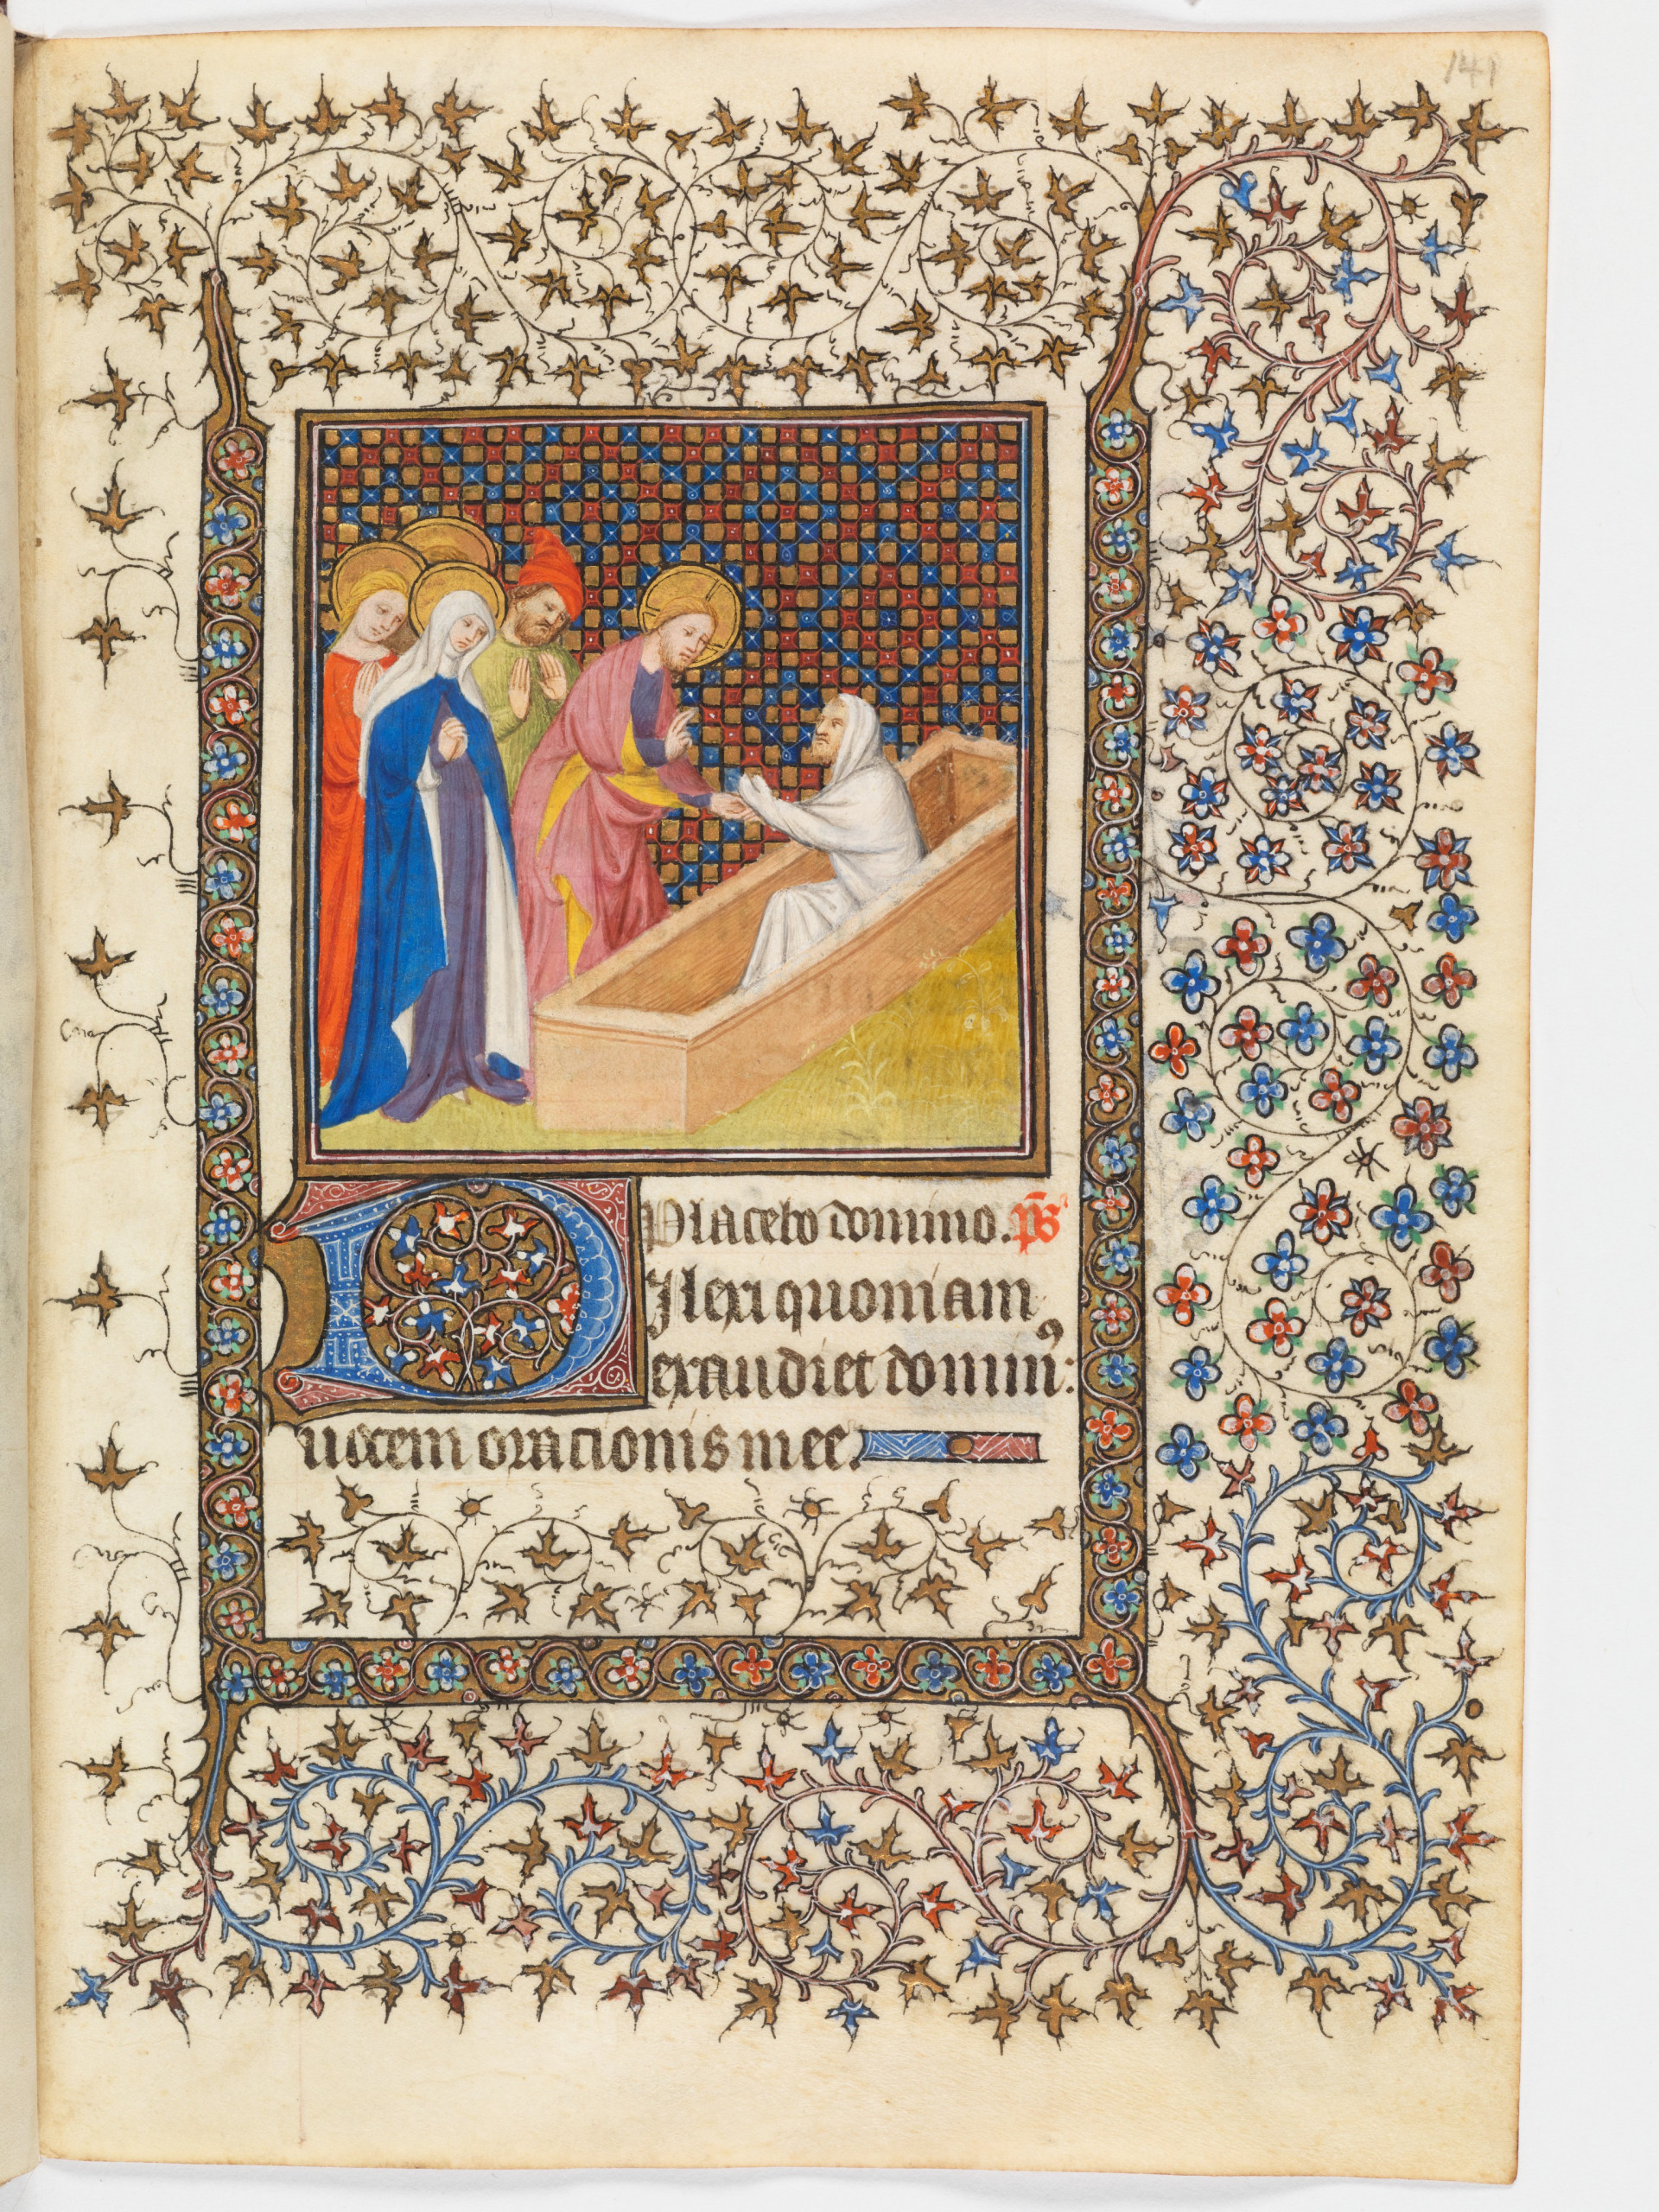 141
Placebo domino. p̄s
Dilexi quoniam
exaudiet dominꝰ:
uocem orationis mee.